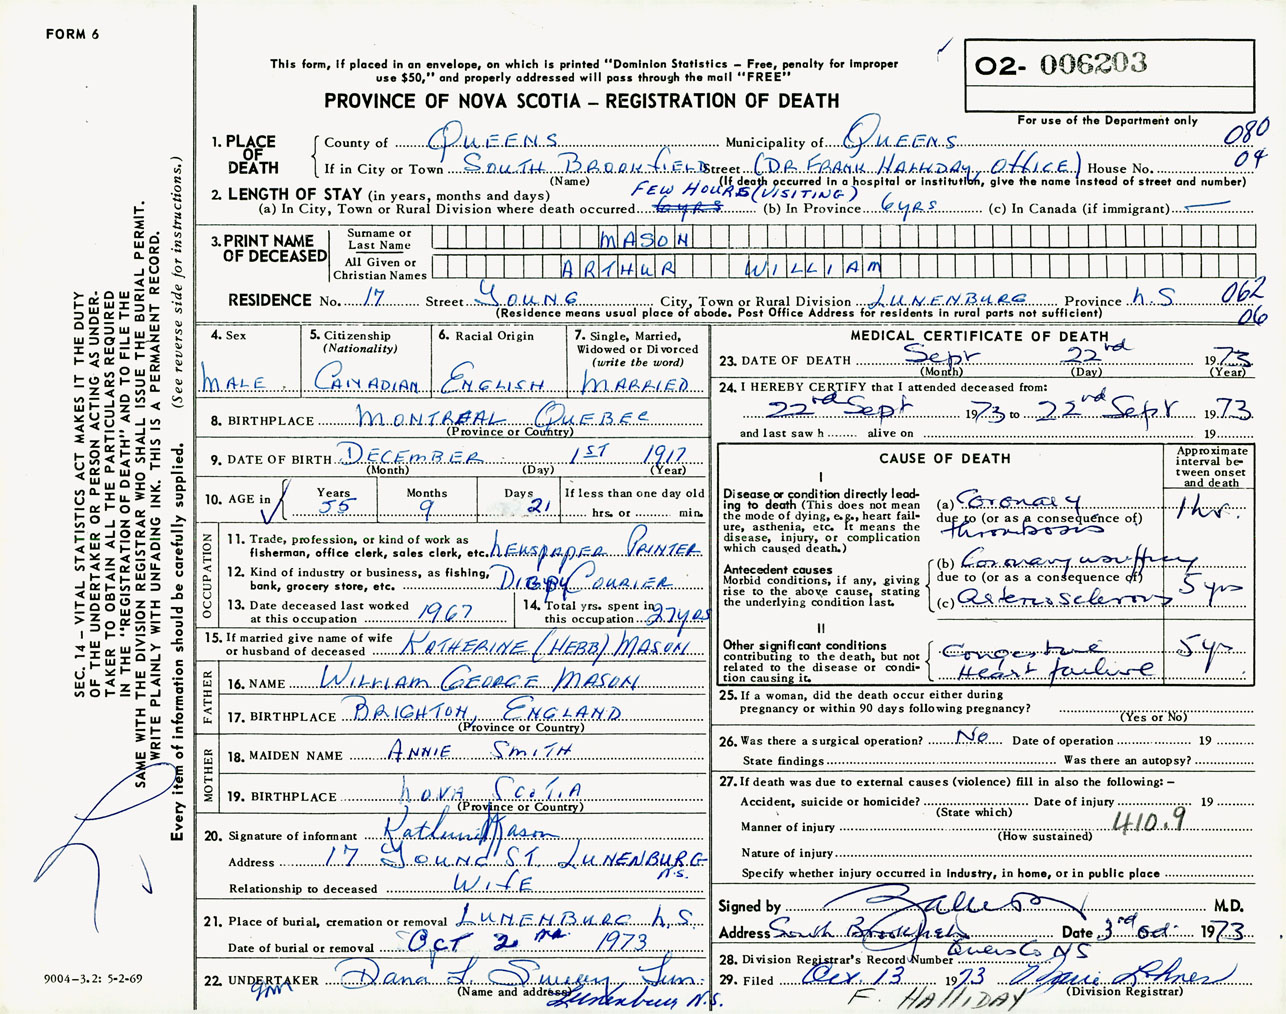 FORM 6
This form, if placed in an envelope, on which is printed "Dominion Statistics – Free, penalty for improper
use $50," and properly addressed will pass through the mail "FREE"
PROVINCE OF NOVA SCOTIA – REGISTRATION OF DEATH
O2- 006203
For use of the Department only
080
04
1. PLACE OF DEATH
County of QUEENS Municipality of QUEENS
If in City or Town SOUTH BROOKFIELD Street (DR FRANK HALLIDAY, OFFICE) House No.
(Name) (If death occurred in a hospital or institution, give the name instead of street and number)
2. LENGTH OF STAY (in years, months and days) FEW HOURS (VISITING)
(a) In City, Town or Rural Division where death occurred 6 yrs (b) In Province 6 YRS (c) In Canada (if immigrant) —
3. PRINT NAME OF DECEASED
Surname or Last Name MASON
All Given or Christian Names ARTHUR WILLIAM
RESIDENCE No. 17 Street YOUNG City, Town or Rural Division LUNENBURG Province N.S 062
(Residence means usual place of abode. Post Office Address for residents in rural parts not sufficient) 06
4. Sex
MALE
5. Citizenship (Nationality)
CANADIAN
6. Racial Origin
ENGLISH
7. Single, Married, Widowed or Divorced (write the word)
MARRIED
8. BIRTHPLACE MONTREAL QUEBEC
(Province or Country)
9. DATE OF BIRTH DECEMBER 1ST 1917
(Month) (Day) (Year)
10. AGE in Years 55 Months 9 Days 21 If less than one day old
hrs. or min.
OCCUPATION
11. Trade, profession, or kind of work as
fisherman, office clerk, sales clerk, etc. NEWSPAPER PRINTER
12. Kind of industry or business, as fishing,
bank, grocery store, etc. DIGBY COURIER
13. Date deceased last worked
at this occupation 1967
14. Total yrs. spent in
this occupation 27 yrs
15. If married give name of wife
or husband of deceased KATHERINE (HEBB) MASON
FATHER
16. NAME WILLIAM GEORGE MASON
17. BIRTHPLACE BRIGHTON, ENGLAND
(Province or Country)
MOTHER
18. MAIDEN NAME ANNIE SMITH
19. BIRTHPLACE NOVA SCOTIA
(Province or Country)
20. Signature of informant Katherine Mason
Address 17 YOUNG ST. LUNENBURG
N.S.
Relationship to deceased WIFE
21. Place of burial, cremation or removal LUNENBURG N.S.
Date of burial or removal OCT 2 1973
22. UNDERTAKER Dana L. Sweeny
(Name and address) Lunenburg N.S.
MEDICAL CERTIFICATE OF DEATH
23. DATE OF DEATH Sept 22nd 1973
(Month) (Day) (Year)
24. I HEREBY CERTIFY that I attended deceased from:
22nd Sept 1973 to 22nd Sept 1973
and last saw h alive on 19
CAUSE OF DEATH
Approximate interval between onset and death
I
Disease or condition directly lead-
ing to death (This does not mean
the mode of dying, e.g., heart fail-
ure, asthenia, etc. It means the
disease, injury, or complication
which caused death.)
(a) Coronary
due to (or as a consequence of)
thrombosis
1 hr.
Antecedent causes
Morbid conditions, if any, giving
rise to the above cause, stating
the underlying condition last.
(b) Coronary insuffncy
due to (or as a consequence of)
(c) Arteriosclerosis
5 yrs
II
Other significant conditions
contributing to the death, but not
related to the disease or condi-
tion causing it.
Congestive
Heart failure
5 yr
25. If a woman, did the death occur either during
pregnancy or within 90 days following pregnancy?
(Yes or No)
26. Was there a surgical operation? No Date of operation 19
State findings Was there an autopsy?
27. If death was due to external causes (violence) fill in also the following: –
Accident, suicide or homicide? Date of injury 19
(State which)
Manner of injury 410.9
(How sustained)
Nature of injury
Specify whether injury occurred in industry, in home, or in public place
Signed by M.D.
Address South Brookfield Date 3rd Oct 1973
Queens Co NS
28. Division Registrar's Record Number
29. Filed Oct. 13 1973
(Division Registrar)
F. HALLIDAY
SEC. 14 – VITAL STATISTICS ACT MAKES IT THE DUTY
OF THE UNDERTAKER OR PERSON ACTING AS UNDER-
TAKER TO OBTAIN ALL THE PARTICULARS REQUIRED
IN THE "REGISTRATION OF DEATH" AND TO FILE THE
SAME WITH THE DIVISION REGISTRAR WHO SHALL ISSUE THE BURIAL PERMIT.
WRITE PLAINLY WITH UNFADING INK. THIS IS A PERMANENT RECORD.
Every item of information should be carefully supplied. (See reverse side for instructions.)
9004-3.2: 5-2-69